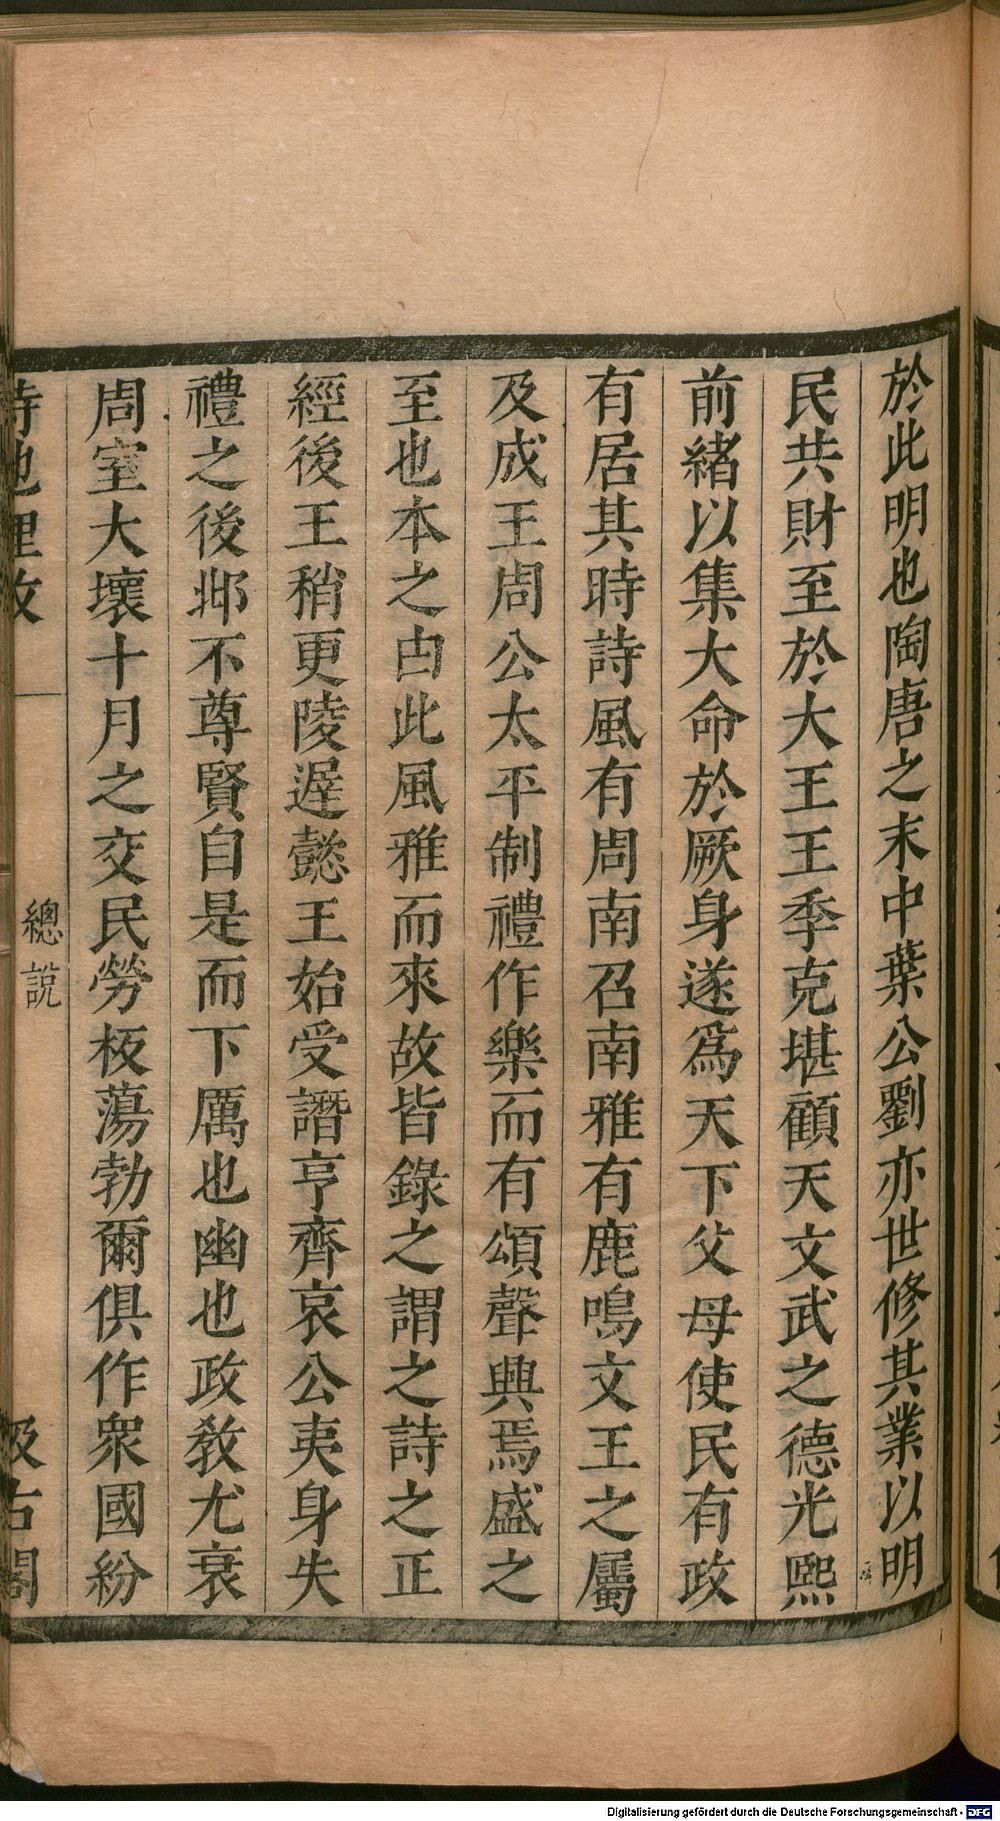 於此明也陶唐之末中葉公劉亦世修其業以明
民共財至於大王王季克堪顧天文武之德光熙
前緒以集大命於厥身遂爲天下父母使民有政
有居其時詩風有周南召南雅有鹿鳴文王之屬
及成王周公太平制禮作樂而有頌聲興焉盛之
至也本之由此風雅而來故皆錄之謂之詩之正
經後王稍更陵遲懿王始受譖亨齊哀公夷身失
禮之後邶不尊賢自是而下厲也幽也政敎尤衰
周室大壞十月之交民勞板蕩勃爾俱作衆國紛
詩地理攷
總說
汲古閣
Digitalisierung gefördert durch die Deutsche Forschungsgemeinschaft - DFG